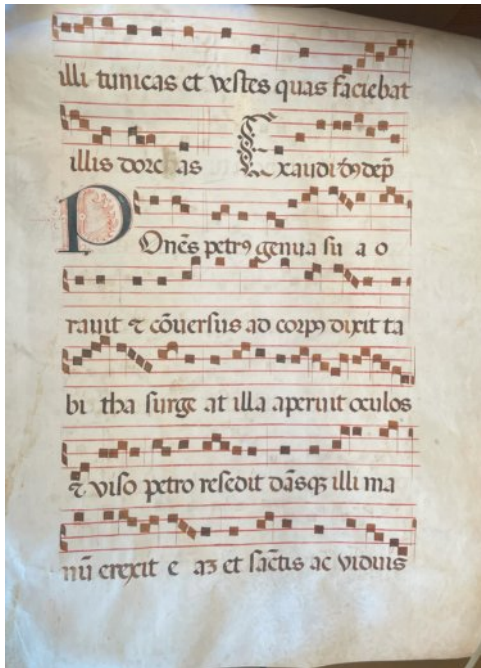 illi tunicas et vestes quas faciebat
illis dorchas Exaudi dn̄s dep̄
POnēs petrꝰ genua su a o
rauit ⁊ cōuersus ad corpꝰ dixit ta
bi tha surge at illa aperuit oculos
⁊ viso petro resedit dāsqꝫ illi ma
nū erexit e aꝫ et sāctis ac viduis